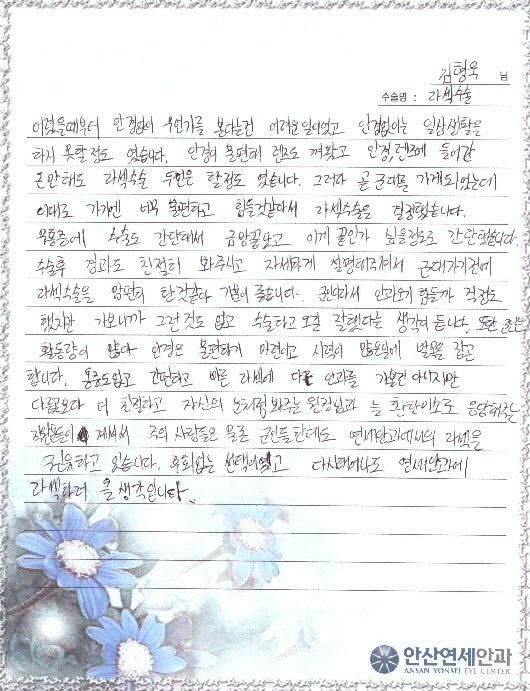 김형욱 님
수술명 : 라섹수술
어렸을때부터 안경없이 무언가를 본다는건 어려운일이었고 안경없이는 일상생활을
하지 못할정도 였습니다. 안경이 불편해 렌즈도 껴왔고 안경,렌즈에 들어간
돈만해도 라섹수술 두번은 할정도 였습니다. 그러다 곧 군대를 가게되었는데
이대로 가기엔 너무 불편하고 힘들것같아서 라섹수술을 결정했습니다.
무통증에 수술도 간단해서 금방끝났고 이게 끝인가 싶을정도로 간단했습니다.
수술후 경과도 친절히 봐주시고 자세하게 설명해주셔서 군대가기전에
라섹수술을 맘편히 한것같아 기분이 좋습니다. 군인이라서 안과오기 힘들까 걱정도
했지만 가보니까 그런것도 없고 수술하고 오길 잘했다는 생각이 듭니다. 또한 군인은
활동량이 많아 안경은 불편하기 마련이고 시력이 많은일에 발목을 잡곤
합니다. 통증도없고 간편하고 빠른 라섹에 다른 안과를 가보진 않았지만
다른곳보다 더 친절하고 자신의 눈처럼 봐주는 원장님과 늘 환한미소로 응대해주는
직원분들이 계셔서 주위 사람들은 물론 군인들한테도 연세안과에서의 라섹을
권유하고 있습니다. 후회없는 선택이였고 다시태어나도 연세안과에
라섹하러 올 생각입니다.
안산연세안과
ANSAN YONSEI EYE CENTER